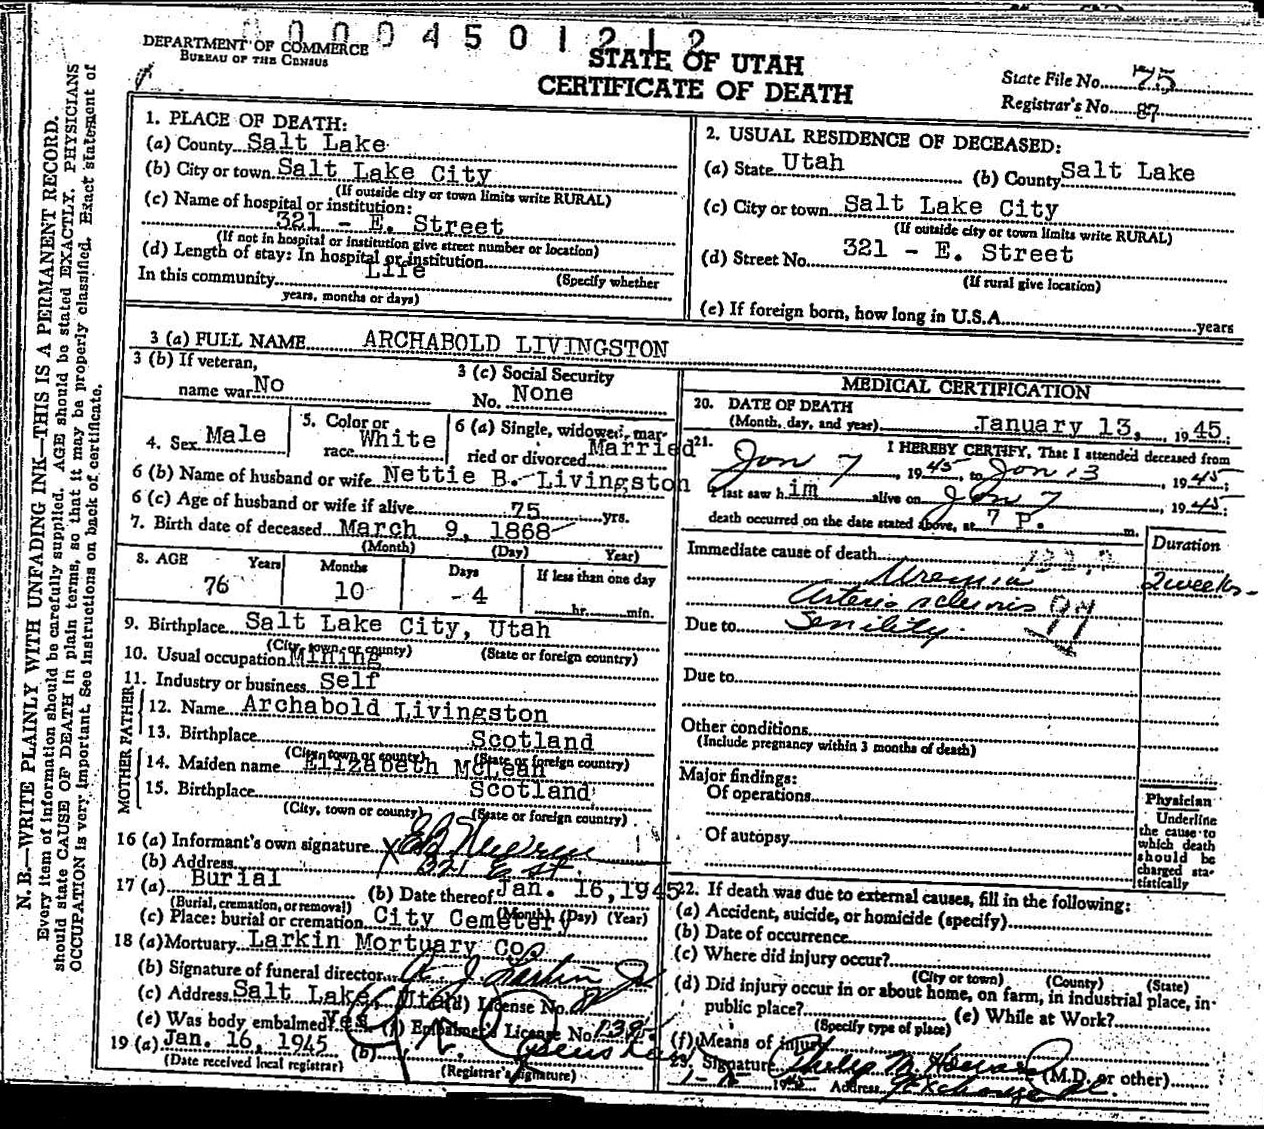 0 0 0 4 5 0 1 2 1 2
DEPARTMENT OF COMMERCE
BUREAU OF THE CENSUS
STATE OF UTAH
CERTIFICATE OF DEATH
State File No. 75
Registrar's No. 87
N. B.—WRITE PLAINLY WITH UNFADING INK—THIS IS A PERMANENT RECORD.
Every item of information should be carefully supplied. AGE should be stated EXACTLY. PHYSICIANS
should state CAUSE OF DEATH in plain terms, so that it may be properly classified. Exact statement of
OCCUPATION is very important. See instructions on back of certificate.
1. PLACE OF DEATH:
(a) County Salt Lake
(b) City or town Salt Lake City
(If outside city or town limits write RURAL)
(c) Name of hospital or institution:
321 - E. Street
(If not in hospital or institution give street number or location)
(d) Length of stay: In hospital or institution
In this community Life (Specify whether
years, months or days)
2. USUAL RESIDENCE OF DECEASED:
(a) State Utah (b) County Salt Lake
(c) City or town Salt Lake City
(If outside city or town limits write RURAL)
(d) Street No. 321 - E. Street
(If rural give location)
(e) If foreign born, how long in U.S.A. years
3 (a) FULL NAME ARCHABOLD LIVINGSTON
3 (b) If veteran,
name war No
3 (c) Social Security
No. None
4. Sex Male
5. Color or
race White
6 (a) Single, widowed, mar-
ried or divorced Married
6 (b) Name of husband or wife Nettie B. Livingston
6 (c) Age of husband or wife if alive 75 yrs.
7. Birth date of deceased March 9, 1868
(Month) (Day) Year)
8. AGE Years Months Days If less than one day
76 10 4 hr. min.
9. Birthplace Salt Lake City, Utah
(City, town or county) (State or foreign country)
10. Usual occupation Mining
11. Industry or business Self
FATHER
12. Name Archabold Livingston
13. Birthplace Scotland
(City, town or county) (State or foreign country)
MOTHER
14. Maiden name Elizabeth McLean
15. Birthplace Scotland
(City, town or county) (State or foreign country)
16 (a) Informant's own signature X
(b) Address 321 E St.
17 (a) Burial (b) Date thereof Jan. 16, 1945
(Burial, cremation, or removal) (Month) (Day) (Year)
(c) Place: burial or cremation City Cemetery
18 (a) Mortuary Larkin Mortuary Co.
(b) Signature of funeral director A J Larkin Jr
(c) Address Salt Lake, Utah (d) License No.
(e) Was body embalmed? Yes (f) Embalmer's License No. 139
19 (a) Jan. 16, 1945 (b)
(Date received local registrar) (Registrar's signature)
MEDICAL CERTIFICATION
20. DATE OF DEATH
(Month, day, and year) January 13, 1945
21. I HEREBY CERTIFY, That I attended deceased from
Jan 7, 1945, to Jan 13, 1945;
I last saw him alive on Jan 7, 1945;
death occurred on the date stated above, at 7 P. m.
Duration
Immediate cause of death
Uremia 2 weeks
Arterio sclerosis 97
Due to Senility
Due to
Other conditions
(Include pregnancy within 3 months of death)
Major findings:
Of operations
Of autopsy
Physician
Underline
the cause to
which death
should be
charged sta-
tistically
22. If death was due to external causes, fill in the following:
(a) Accident, suicide, or homicide (specify)
(b) Date of occurrence
(c) Where did injury occur?
(City or town) (County) (State)
(d) Did injury occur in or about home, on farm, in industrial place, in
public place? (e) While at Work?
(Specify type of place)
(f) Means of injury
23. Signature Philip M. Howard (M.D. or other)
1945 Address Exchange Pl.